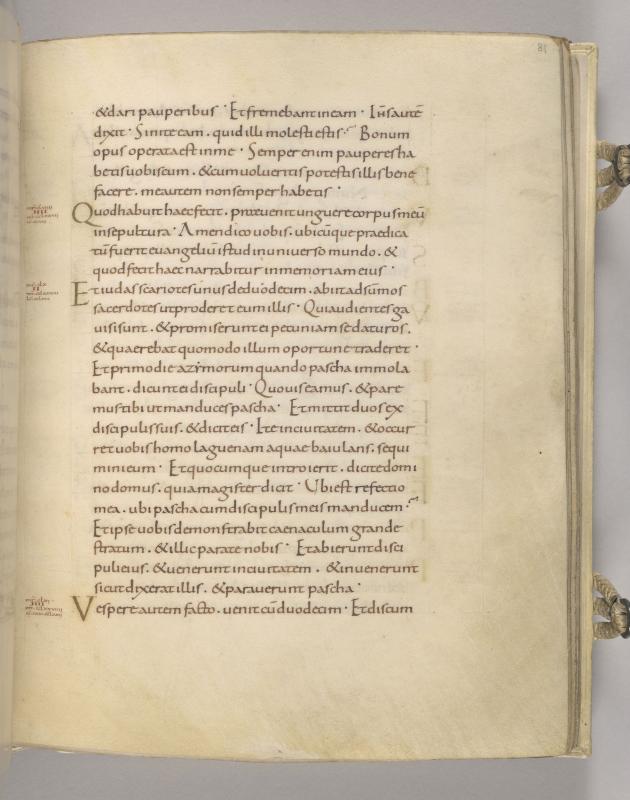 81
&dari pauperibus · Et fremebant in eam · Ih̄s autē
dixit · Sinite eam . quid illi molesti estis · Bonum
opus operata est in me · Semper enim pauperes ha
betis uobiscum . & cum uolueritis potestis illis bene
facere . me autem non semper habetis ·
Quod habuit haec fecit . praeuenit unguere corpus meū
in sepultura · Amen dico uobis . ubicūque praedica
tū fuerit euangeliū istud in uniuerso mundo . &
quod fecit haec narrabitur in memoriam eius ·
Et iudas scariotes unus de duodecim . abiit ad sūmos
sacerdotes ut proderet eum illis · Qui audientes ga
uisi sunt . & promiserunt ei pecuniam se daturos .
& quaerebat quomodo illum oportune traderet ·
Et primo die azymorum quando pascha immola
bant . dicunt ei discipuli · Quo uis eamus . & pare
mus tibi ut manduces pascha · Et mittit duos ex
discipulis suis . & dicit eis · Ite in ciuitatem . & occur
ret uobis homo laguenam aquae baiulans . sequi
mini eum · Et quocumque introierit . dicite domi
no domus . quia magister dicit · Ubi est refectio
mea . ubi pascha cum discipulis meis manducem ·
Et ipse uobis demonstrabit caenaculum grande
stratum . & illic parate nobis · Et abierunt disci
puli eius . & uenerunt in ciuitatem . & inuenerunt
sicut dixerat illis . & parauerunt pascha ·
Vespere autem facto . uenit cū duodecim · Et discum